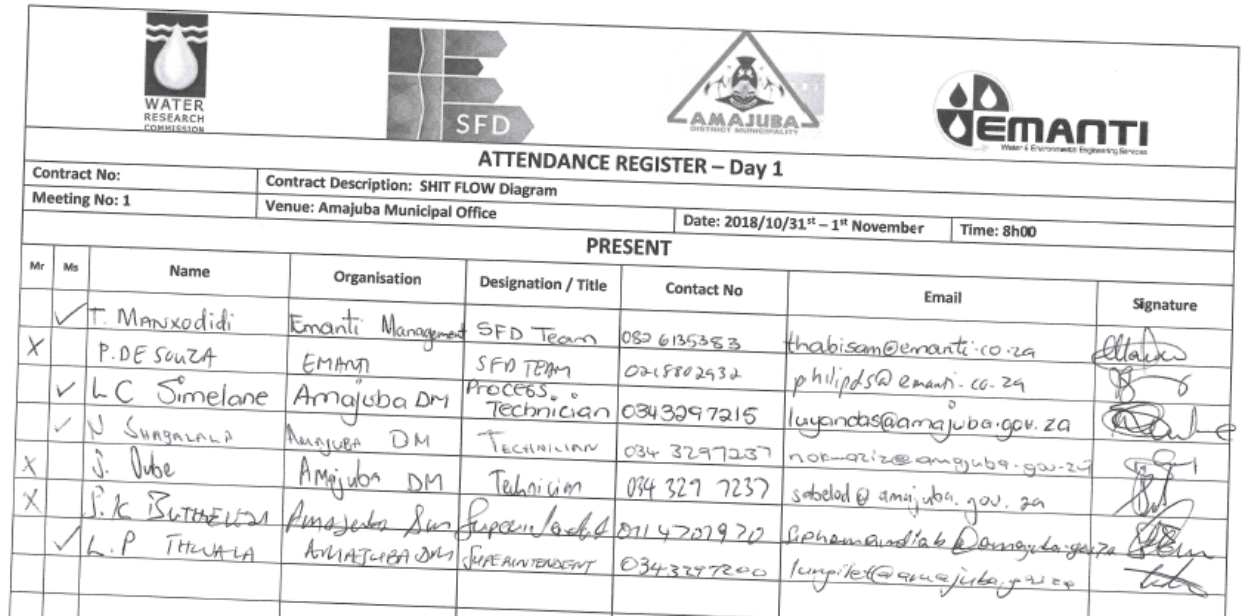 WATER
RESEARCH
COMMISSION
SFD
AMAJUBA
DISTRICT MUNICIPALITY
EMANTI
Water & Environmental Engineering Services
ATTENDANCE REGISTER – Day 1
Contract No: Contract Description: SHIT FLOW Diagram
Meeting No: 1 Venue: Amajuba Municipal Office Date: 2018/10/31st – 1st November Time: 8h00
PRESENT
Mr Ms Name Organisation Designation / Title Contact No Email Signature
✓ T. Manxodidi Emanti Management SFD Team 082 6135383 thabisam@emanti.co.za
X P. DE SOUZA EMANTI SFD TEAM 0218802932 philipds@emanti.co.za
✓ L C Simelane Amajuba DM Process Technician 0343297215 luyandas@amajuba.gov.za
✓ N SHABALALA AMAJUBA DM TECHNICIAN 034 3297237
X S. Dube Amajuba DM Technician 034 329 7237 sabelod@amajuba.gov.za
X S.K Amajuba
✓ L.P THWALA AMAJUBA DM SUPERINTENDENT 0343297200